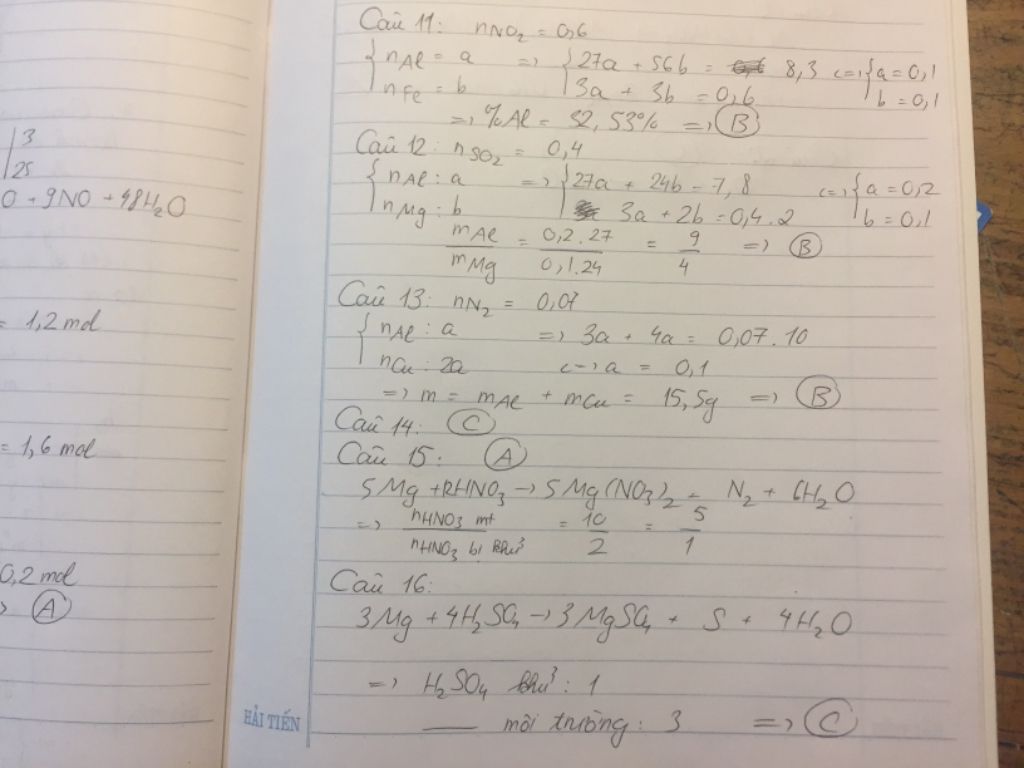 3
25
O + 9NO + 48H₂O
= 1,2 mol
= 1,6 mol
0,2 mol
Ⓐ
Câu 11: nNO₂ = 0,6
{ nAl = a => { 27a + 56b = 8,3 <=> { a = 0,1
nFe = b 3a + 3b = 0,6 b = 0,1
=> %Al = 32,53% => Ⓑ
Câu 12: nSO₂ = 0,4
{ nAl : a => { 27a + 24b = 7,8 <=> { a = 0,2
nMg : b 3a + 2b = 0,4.2 b = 0,1
mAl/mMg = 0,2.27/0,1.24 = 9/4 => Ⓑ
Câu 13: nN₂ = 0,07
{ nAl : a => 3a + 4a = 0,07.10
nCu : 2a <=> a = 0,1
=> m = mAl + mCu = 15,5g => Ⓑ
Câu 14: Ⓒ
Câu 15: Ⓐ
5Mg + HNO₃ → 5Mg(NO₃)₂ - N₂ + 6H₂O
=> nHNO₃ mt/nHNO₃ bị khử = 10/2 = 5/1
Câu 16:
3Mg + 4H₂SO₄ → 3MgSO₄ + S + 4H₂O
=> H₂SO₄ khử : 1
—— môi trường : 3 => Ⓒ
HẢI TIẾN